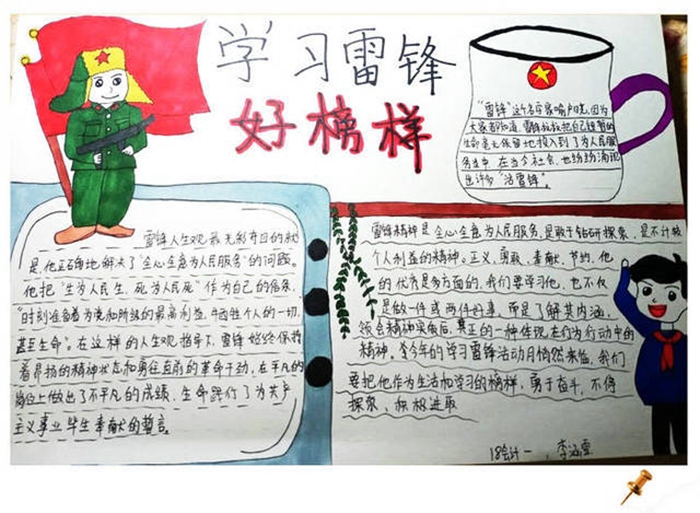 学习雷锋
好榜样
"雷锋"这个名字家喻户晓，因为
大家都知道，雷锋叔叔把自己短暂的
生命毫无保留地投入到了为人民服
务当中，在当今社会，也纷纷涌现
出许多"活雷锋"。
雷锋人生观最光彩夺目的就
是，他正确地解决了"全心全意为人民服务"的问题。
他把"生为人民生，死为人民死"作为自己的信条，
"时刻准备着为党和阶级的最高利益，牺牲个人的一切，
甚至生命"。在这样的人生观指导下，雷锋始终保持
着昂扬的精神状态和勇往直前的革命干劲，在平凡的
岗位上做出了不平凡的成绩，生命践行了为共产
主义事业毕生奉献的誓言。
雷锋精神是全心全意为人民服务，是敢于钻研探索，是不计较
个人利益的精神。正义、勇敢、奉献、节约，他
的优秀是多方面的，我们要学习他，也不仅
是做一件或两件好事，而是了解其内涵，
领会精神实质后，真正的一种体现在行为行动中的
精神，今年的学习雷锋活动月悄然来临，我们
要把他作为生活和学习的榜样，勇于奋斗，不停
探索，积极进取
18会计一